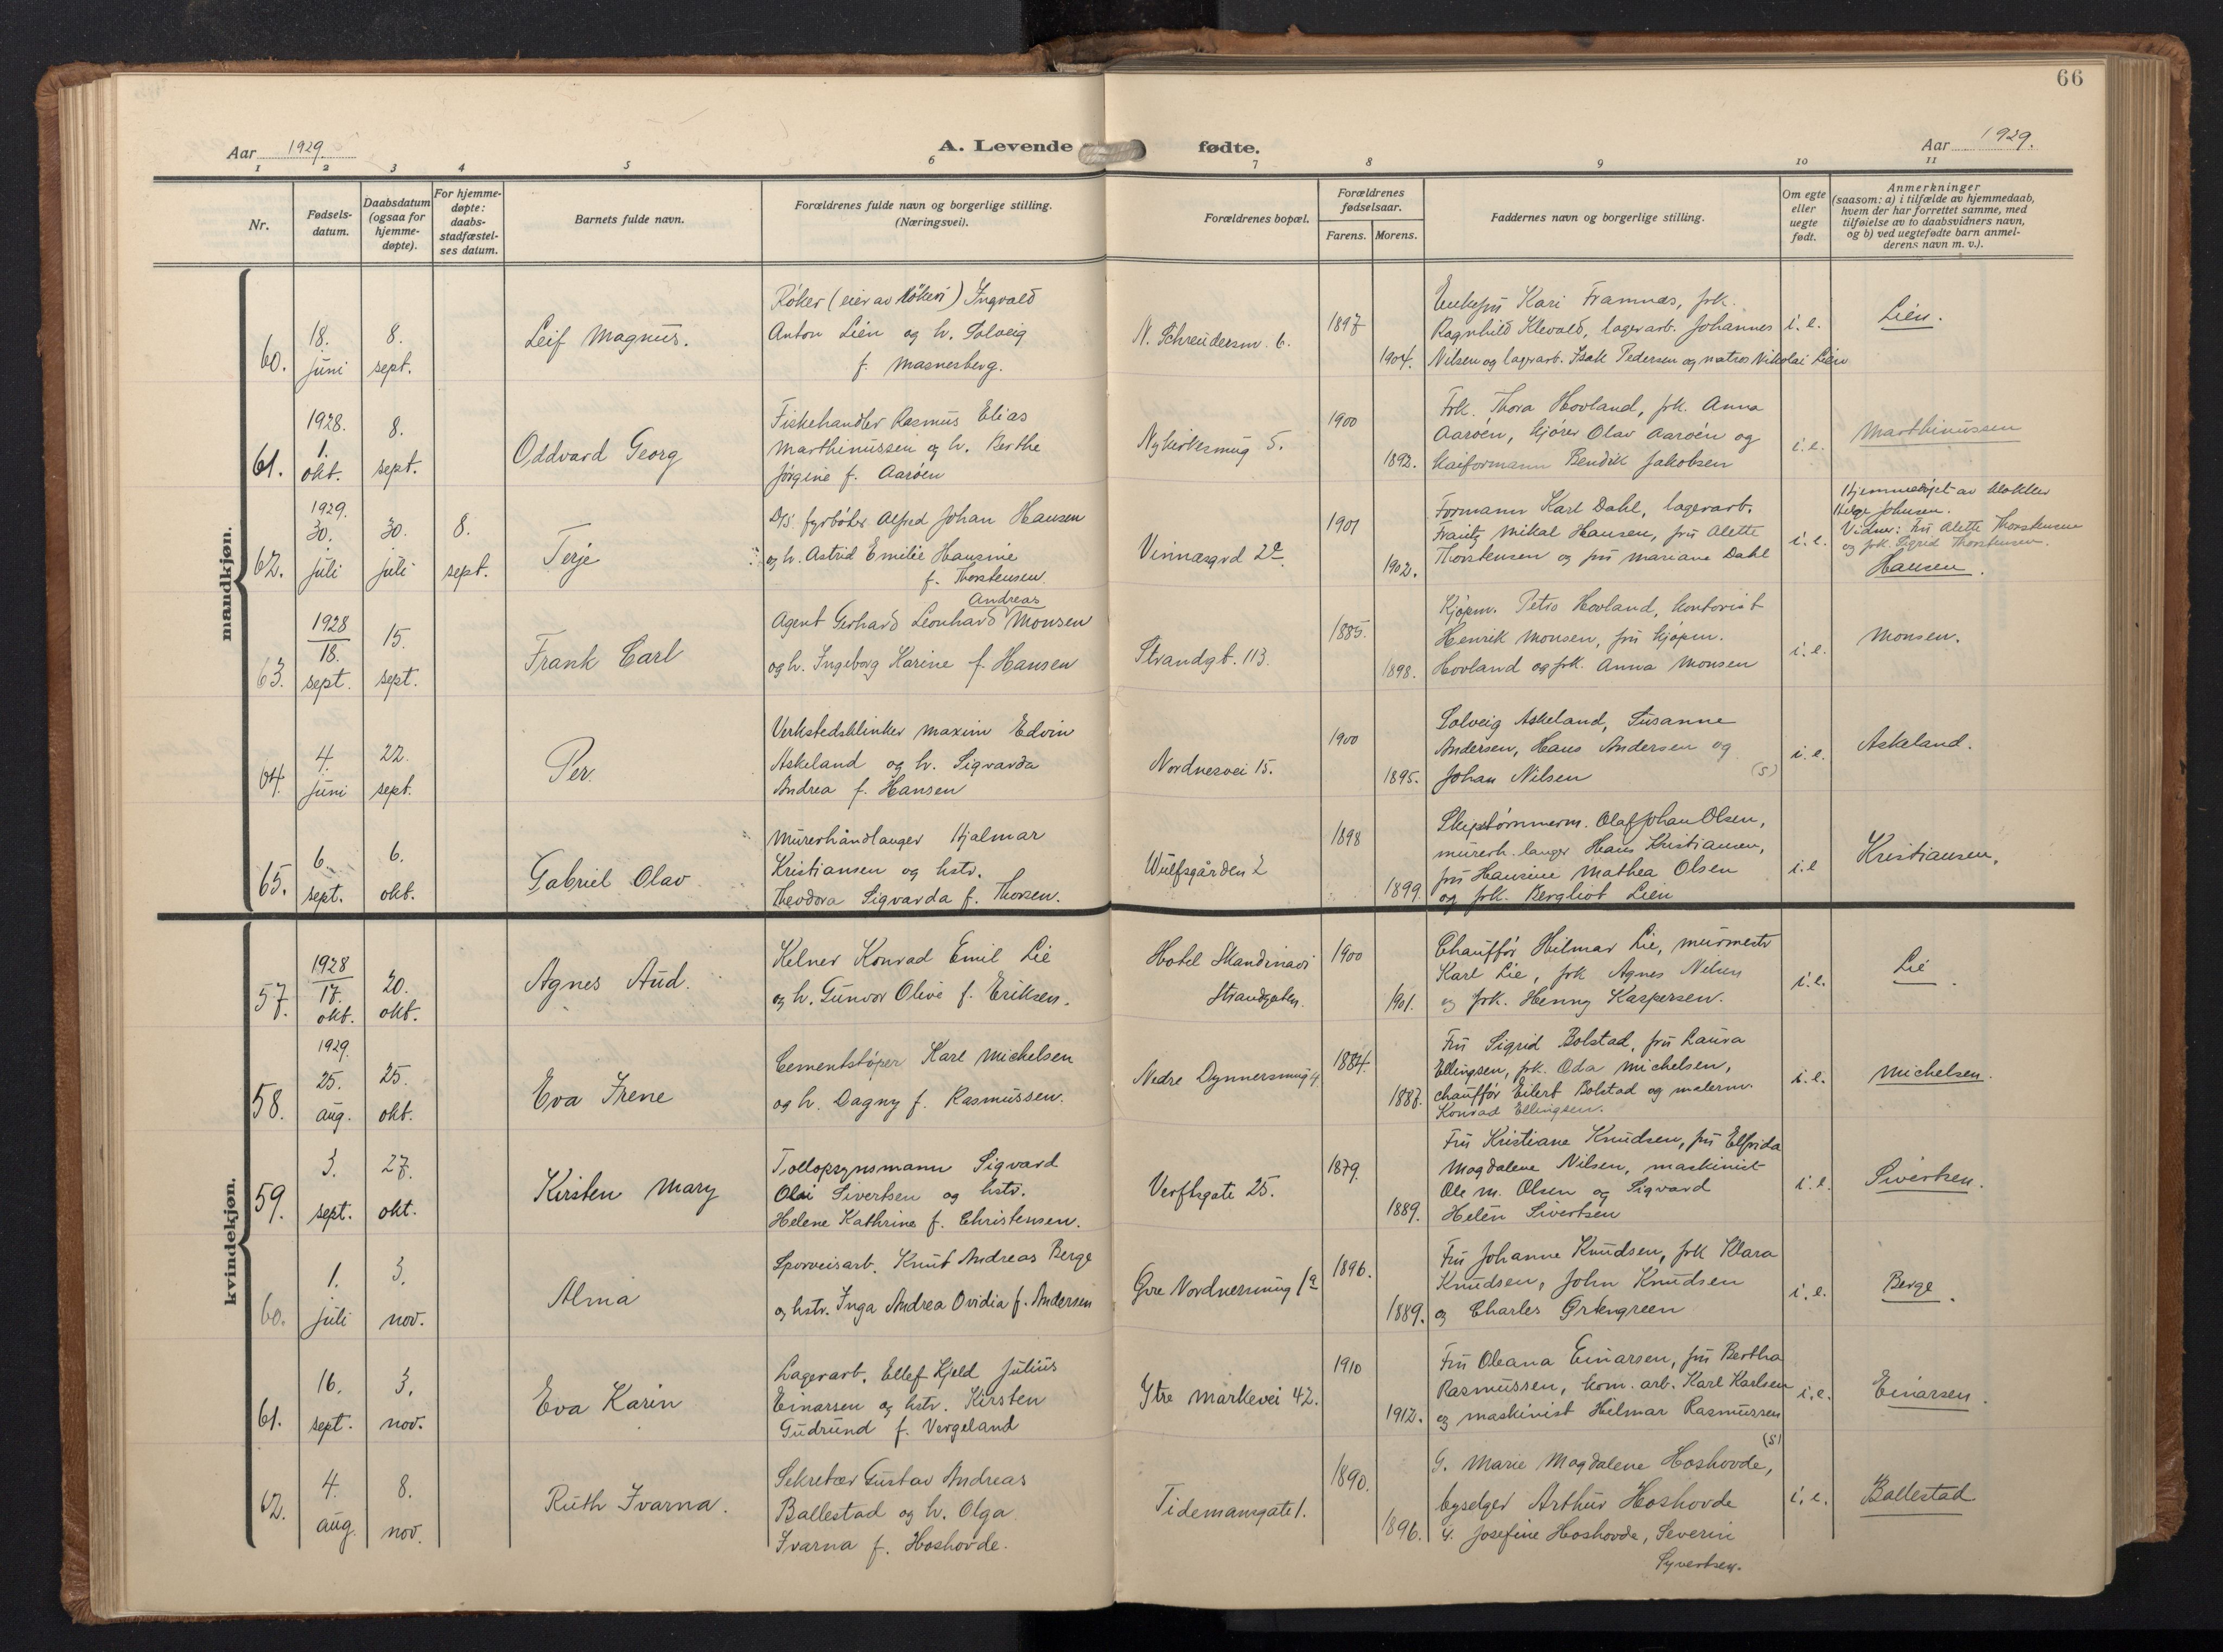 66
Aar 1929.
A. Levende fødte.
Aar 1929.
1 2 3 4 5 6 7 8 9 10 11
Nr.
Fødsels-
datum.
Daabsdatum
(ogsaa for
hjemme-
døpte).
For hjemme-
døpte:
daabs-
stadfæstel-
ses datum.
Barnets fulde navn.
Forældrenes fulde navn og borgerlige stilling.
(Næringsvei).
Forældrenes bopæl.
Forældrenes
fødselsaar.
Farens. Morens.
Faddernes navn og borgerlige stilling.
Om egte
eller
uegte
født.
Anmerkninger
(saasom: a) i tilfælde av hjemmedaab,
hvem der har forrettet samme, med
tilføielse av to daabsvidners navn,
og b) ved uegtefødte barn anmel-
derens navn m. v.).
mandkjøn.
60.
18.
juni
8.
sept.
Leif Magnus.
Røker (eier av røkeri) Ingvald
Anton Lien og h. Solveig
f. Masnesberg.
N. Schreudersm. 6.
1897
1904.
Enkefru Kari Framnæs, frk.
Ragnhild Klevold, lagerarb. Johannes
Nilsen og lagerarb. Isak Pedersen og matros Nikolai Lien
i. e.
Lien.
61.
1928.
1.
okt.
8.
sept.
Oddvard Georg
Fiskehandler Rasmus Elias
Marthinussen og h. Berthe
Jørgine f. Aarøen
Nykirkesmug 5.
1900
1892.
Frk. Thora Hovland, frk. Anna
Aarøen, kjører Olav Aarøen og
kaiformann Bendik Jakobsen
i. e.
Marthinussen
62.
1929.
30.
juli
30.
juli
8.
sept.
Terje
D/S. fyrbøter Alfred Johan Hansen
og h. Astrid Emilie Hansine
f. Thorstensen
Vinnæsgrd 2a.
1901
1902.
Formann Karl Dahl, lagerarb.
Frantz Mikal Hansen, fru Alette
Thorstensen og fru Mariane Dahl
i. e.
Hjemmedøpt av klokker
Helge Johnsen.
Vidner: fru Alette Thorstensen
og frk. Sigrid Thorstensen.
Hansen.
63.
1928
18.
sept.
15.
sept.
Frank Carl
Andreas
Agent Gerhard Leonhard Monsen
og h. Ingeborg Karine f. Hansen
Strandgt. 113.
1885.
1898.
Kjøpm. Petro Hovland, kontorist
Henrik Monsen, fru kjøpm.
Hovland og frk. Anna Monsen
i. e.
Monsen.
64.
4.
juni
22.
sept.
Per.
Verkstedsklinker Maxim Edvin
Askeland og h. Sigvarda
Andrea f. Hansen
Nordnesvei 15.
1900
1895.
Solveig Askeland, Susanne
Andersen, Hans Andersen og
Johan Nilsen (S)
i. e.
Askeland.
65.
6.
sept.
6.
okt.
Gabriel Olav
Murerhåndlanger Hjalmar
Kristiansen og hstr.
Theodora Sigvarda f. Thorsen.
Wulfsgården 2
1898
1899.
Skipstømmerm. Olaf Johan Olsen,
murerh. langer Hans Kristiansen,
fru Hansine Mathea Olsen
og frk. Bergliot Lien
i. e
Kristiansen.
kvindekjøn.
57.
1928
17.
okt.
20.
okt.
Agnes Aud.
Kelner Konrad Emil Lie
og h. Gunvor Olive f. Eriksen.
Hotel Skandinavi
Strandgaten.
1900
1901.
Chauffør Hilmar Lie, murmestr
Karl Lie, frk Agnes Nilsen
og frk. Henny Kaspersen.
i. e.
Lie.
58.
1929.
25.
aug.
25.
okt.
Eva Irene
Cementstøper Karl Michelsen
og h. Dagny f. Rasmussen.
Nedre Dynnersmug 4.
1884.
1887.
Fru Sigrid Bolstad, fru Laura
Ellingsen, frk. Oda Michelsen,
chauffør Eilert Bolstad og malerm.
Konrad Ellingsen.
i. e.
Michelsen.
59.
3.
sept.
27.
okt.
Kirsten Mary
Tollopsynsmann Sigvard
Olai Sivertsen og hstr.
Helene Kathrine f. Christensen.
Verftsgate 25.
1879.
1889.
Fru Kristiane Knudsen, fru Elfrida
Magdalene Nilsen, maskinist
Ole M. Olsen og Sigvard
Helén Sivertsen
i. e.
Sivertsen.
60.
1.
juli
3.
nov.
Alma
Sporveisarb. Knut Andreas Berge
og hstr. Inga Andrea Ovidia f. Andersen
Øvre Nordnesmug 1a
1896.
1889.
Fru Johanne Knudsen, frk Klara
Knudsen, John Knudsen
og Charles
i. e.
Berge.
61.
16.
sept.
3.
nov.
Eva Karin
Lagerarb. Ellef Kjeld Julius
Einarsen og hstr. Kirsten
Gudrund f. Vergeland
Ytre Markevei 42.
1910
1912.
Fru Oleana Einarsen, fru Bertha
Rasmussen, kom. arb. Karl Karlsen
og maskinist Hilmar Rasmussen
(S)
i. e.
Einarsen.
62.
4.
aug.
8.
nov.
Ruth Ivarna.
Sekretær Gustav Andreas
Ballestad og h. Olga
Ivarna f. Hoshovde.
Tidemansgate 1.
1890.
1896.
G. Marie Magdalene Hoshovde,
byselger Arthur Hoshovde
U. Josefine Hoshovde, Severin
Syvertsen.
i. e.
Ballestad